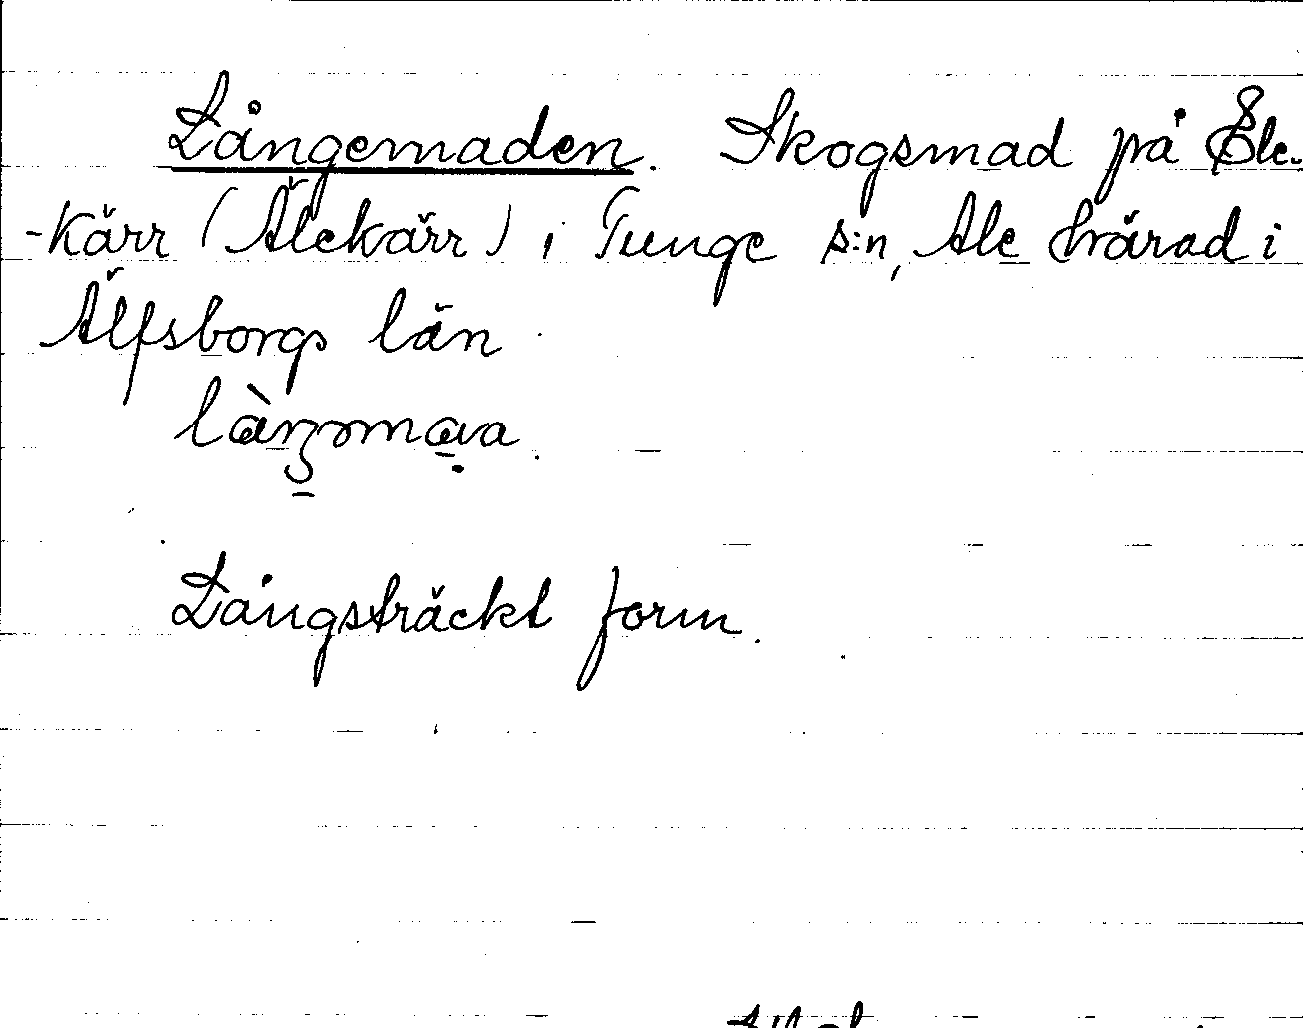 Långemaden. Skogsmad på Åle-
-kärr (Älekärr) i Tunge s:n, Ale härad i
Älfsborgs län
Långsträckt form.